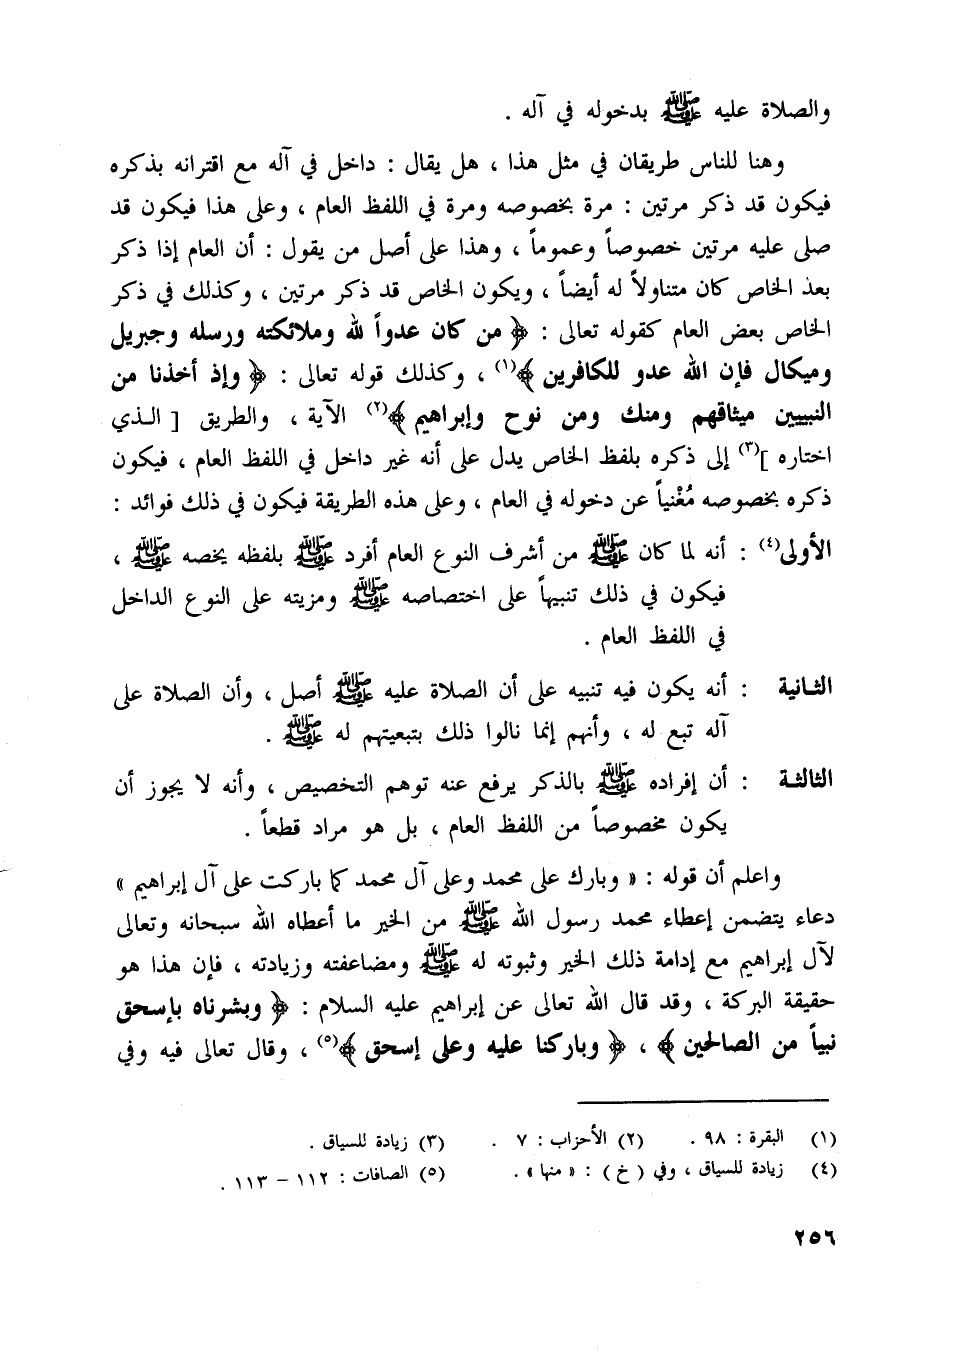 والصلاة عليه ﷺ بدخوله في آله .
وهنا للناس طريقان في مثل هذا ، هل يقال : داخل في آله مع اقترانه بذكره
فيكون قد ذكر مرتين : مرة بخصوصه ومرة في اللفظ العام ، وعلى هذا فيكون قد
صلى عليه مرتين خصوصاً وعموماً ، وهذا على أصل من يقول : أن العام إذا ذكر
بعذ الخاص كان متناولاً له أيضاً ، ويكون الخاص قد ذكر مرتين ، وكذلك في ذكر
الخاص بعض العام كقوله تعالى : ﴿ من كان عدواً لله وملائكته ورسله وجبريل
وميكال فإن الله عدو للكافرين ﴾(١) ، وكذلك قوله تعالى : ﴿ وإذ أخذنا من
النبيين ميثاقهم ومنك ومن نوح وإبراهيم ﴾(٢) الآية ، والطريق [ الـذي
اختاره ](٣) إلى ذكره بلفظ الخاص يدل على أنه غير داخل في اللفظ العام ، فيكون
ذكره بخصوصه مُغْنياً عن دخوله في العام ، وعلى هذه الطريقة فيكون في ذلك فوائد :
الأولى(٤) : أنه لما كان ﷺ من أشرف النوع العام أفرد ﷺ بلفظه يخصه ﷺ ،
فيكون في ذلك تنبيهاً على اختصاصه ﷺ ومزيته على النوع الداخل
في اللفظ العام .
الثـانية : أنه يكون فيه تنبيه على أن الصلاة عليه ﷺ أصل ، وأن الصلاة على
آله تبع له ، وأنهم إنما نالوا ذلك بتبعيتهم له ﷺ .
الثالثـة : أن إفراده ﷺ بالذكر يرفع عنه توهم التخصيص ، وأنه لا يجوز أن
يكون مخصوصاً من اللفظ العام ، بل هو مراد قطعاً .
واعلم أن قوله : « وبارك على محمد وعلى آل محمد كما باركت على آل إبراهيم »
دعاء يتضمن إعطاء محمد رسول الله ﷺ من الخير ما أعطاه الله سبحانه وتعالى
لآل إبراهيم مع إدامة ذلك الخير وثبوته له ﷺ ومضاعفته وزيادته ، فإن هذا هو
حقيقة البركة ، وقد قال الله تعالى عن إبراهيم عليه السلام : ﴿ وبشرناه بإسحق
نبياً من الصالحين ﴾ ، ﴿ وباركنا عليه وعلى إسحق ﴾(٥) ، وقال تعالى فيه وفي
(١) البقرة : ٩٨ . (٢) الأحزاب : ٧ . (٣) زيادة للسياق .
(٤) زيادة للسياق ، وفي ( خ ) : « منها » . (٥) الصافات : ١١٢ – ١١٣ .
٢٥٦